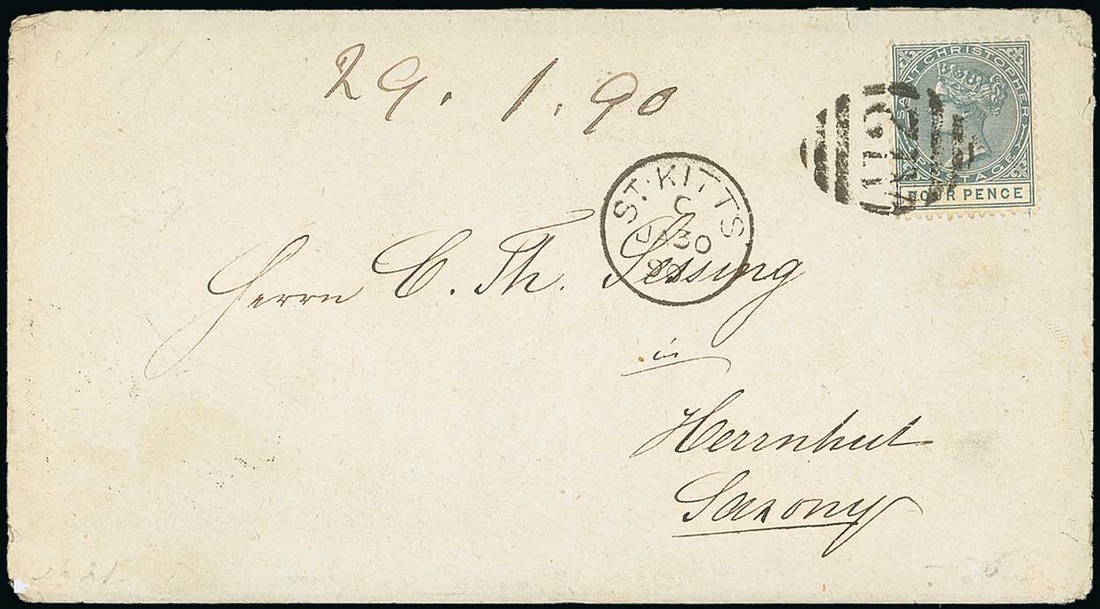 29. 1. 90
SAINT CHRISTOPHER
POSTAGE
FOUR PENCE
A12
ST. KITTS
C
JA 30
90
Herrn C. Th. Jessing
in
Herrnhut
Saxony